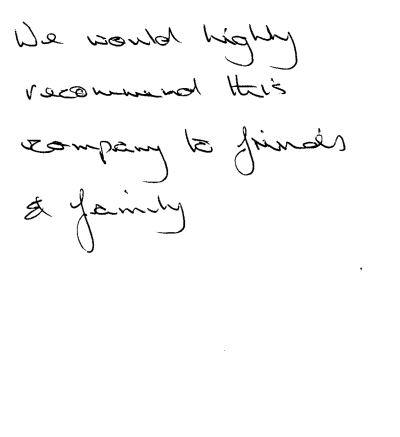 We would highly
recommend this
company to friends
& family